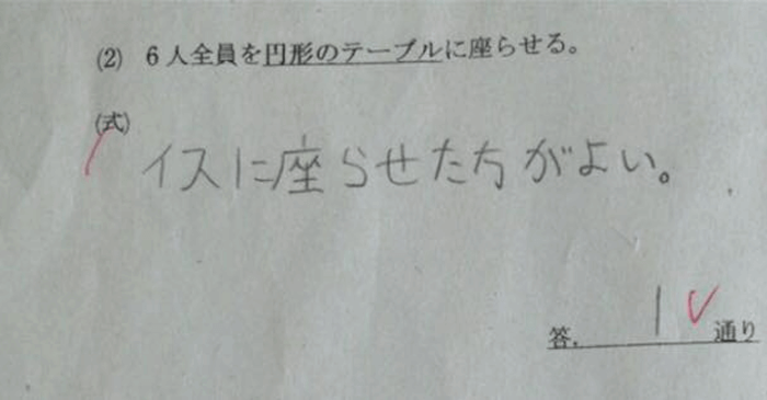 (2) 6人全員を円形のテーブルに座らせる。
(式)
イスに座らせた方がよい。
答. 1 通り